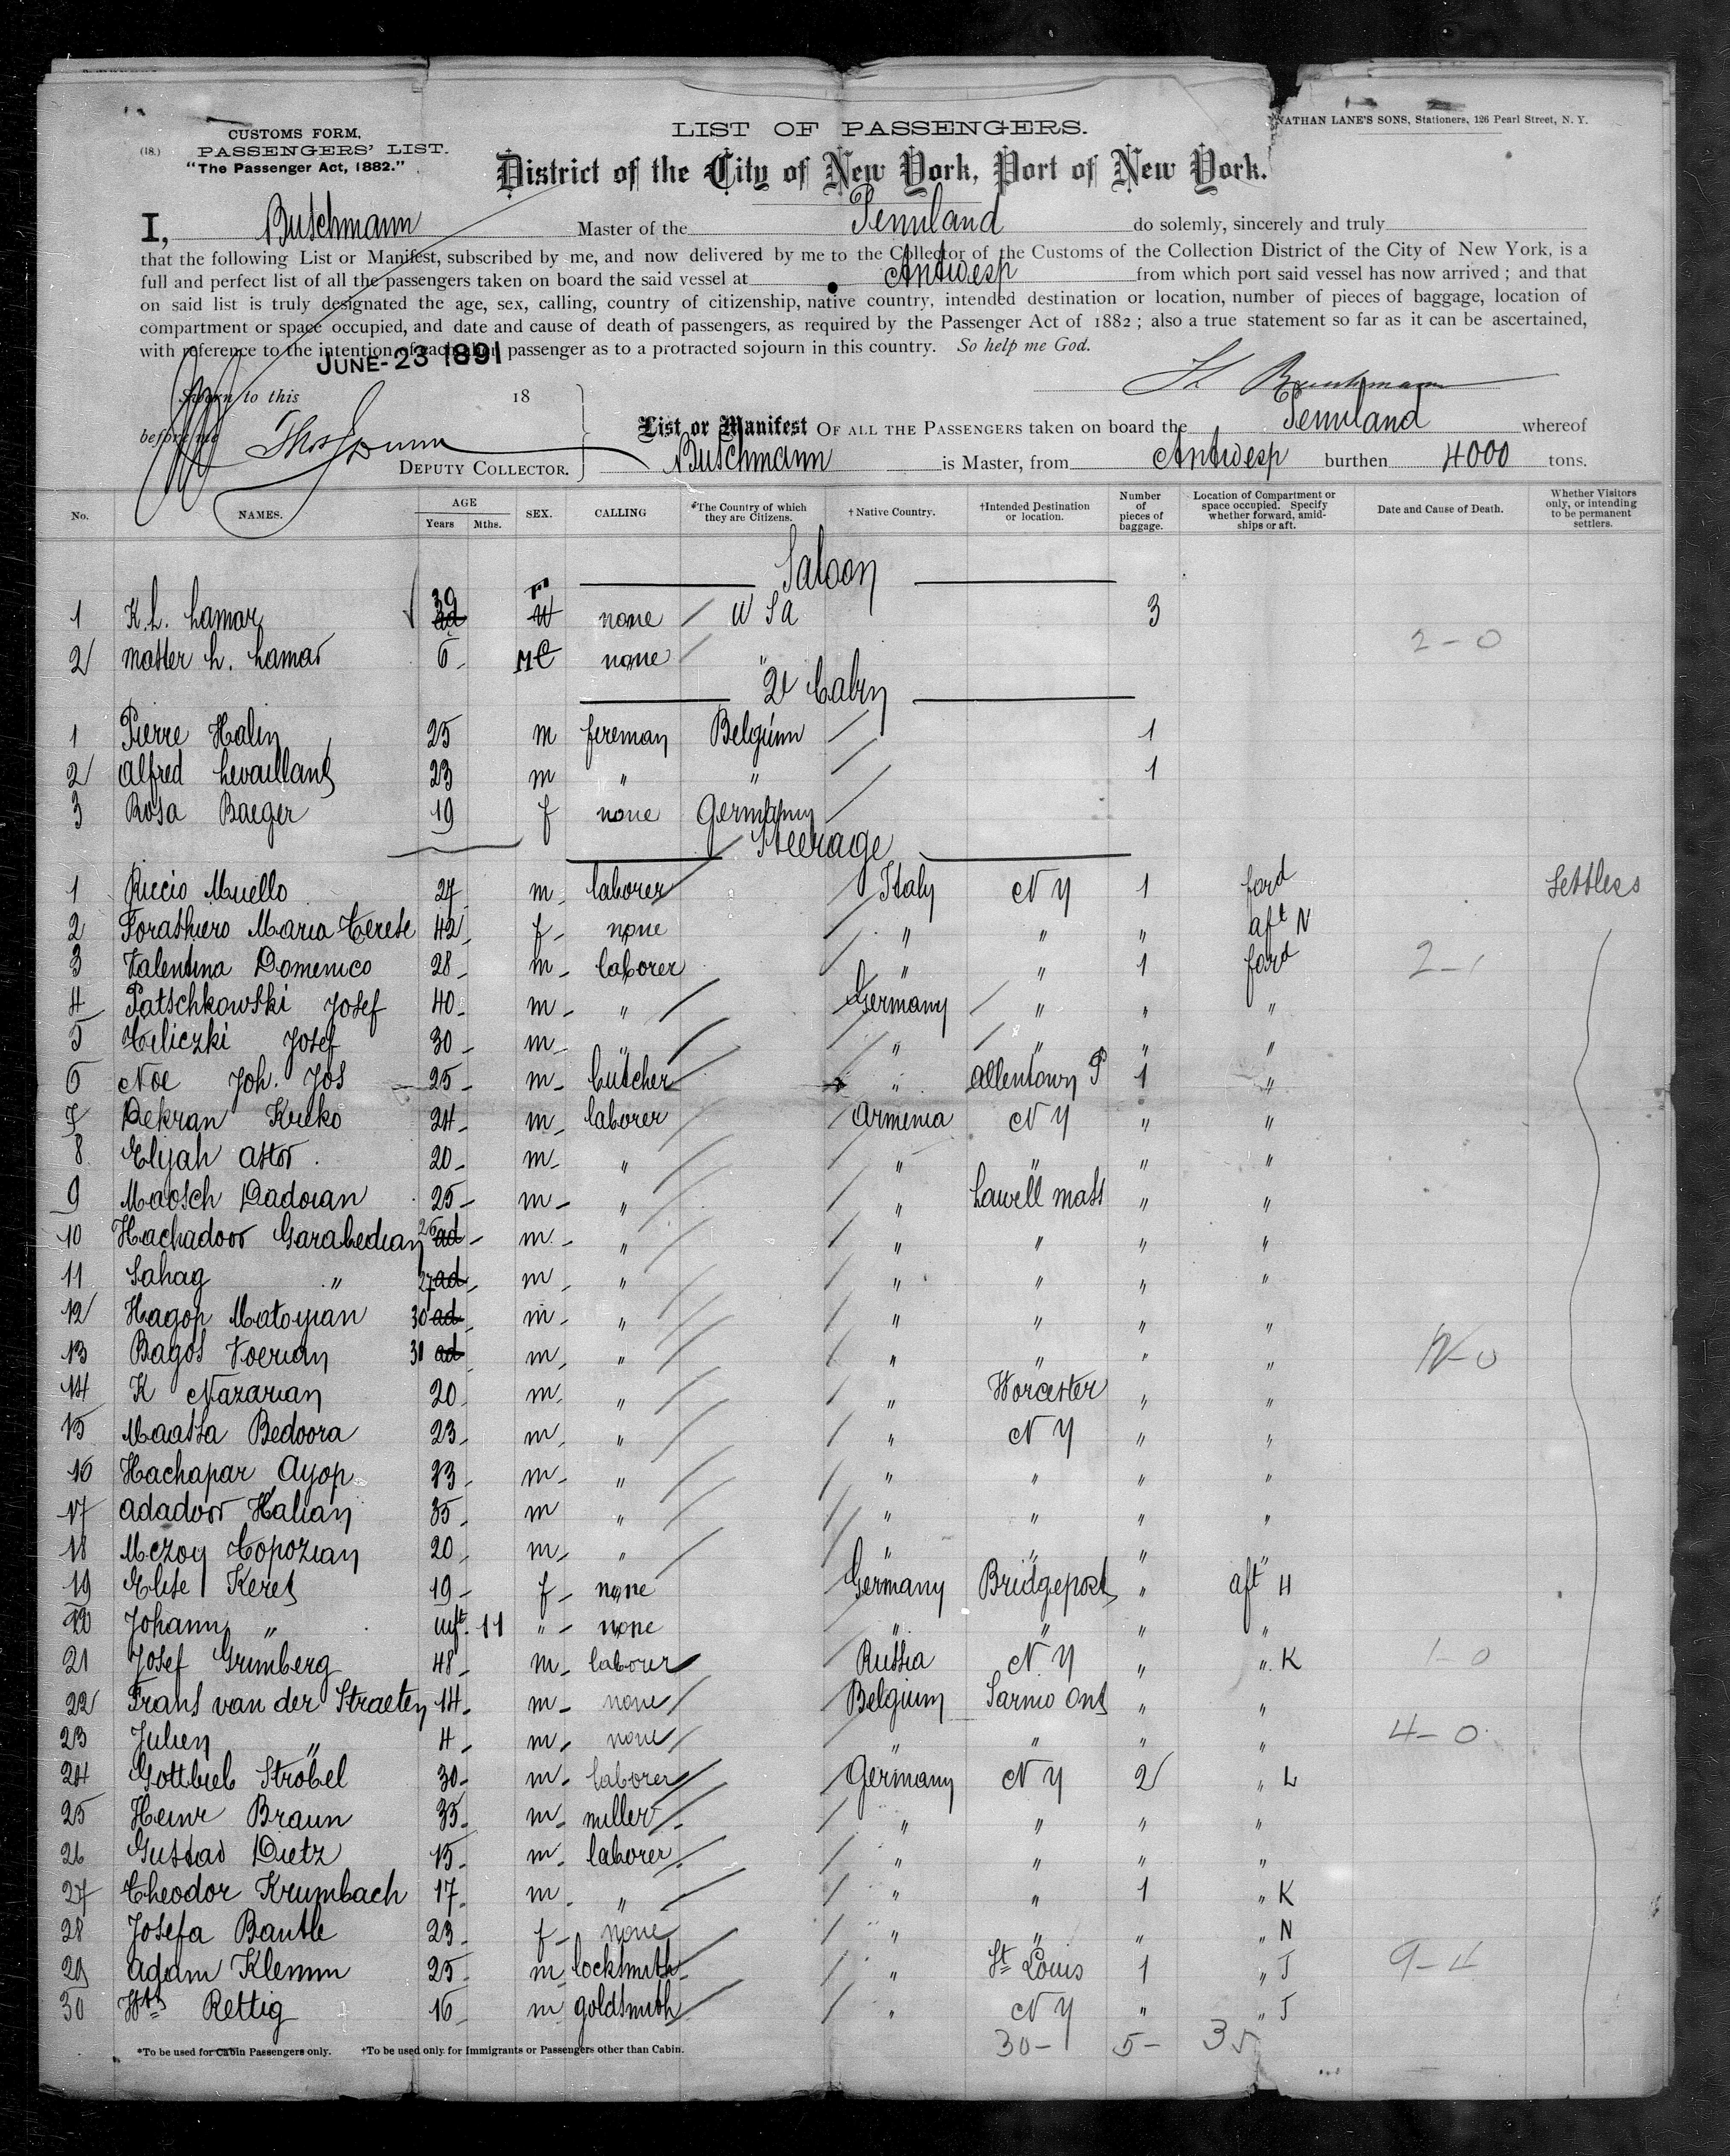 CUSTOMS FORM,
(18.) PASSENGERS' LIST.
"The Passenger Act, 1882."
LIST OF PASSENGERS.
NATHAN LANE'S SONS, Stationers, 126 Pearl Street, N. Y.
District of the City of New York, Port of New York.
I, Buschmann Master of the Pennland do solemly, sincerely and truly
that the following List or Manifest, subscribed by me, and now delivered by me to the Collector of the Customs of the Collection District of the City of New York, is a
full and perfect list of all the passengers taken on board the said vessel at Antwerp from which port said vessel has now arrived; and that
on said list is truly designated the age, sex, calling, country of citizenship, native country, intended destination or location, number of pieces of baggage, location of
compartment or space occupied, and date and cause of death of passengers, as required by the Passenger Act of 1882; also a true statement so far as it can be ascertained,
with reference to the intention of each such passenger as to a protracted sojourn in this country. So help me God.
JUNE-23 1891
Sworn to this 18
before me
DEPUTY COLLECTOR.
List or Manifest OF ALL THE PASSENGERS taken on board the Pennland whereof
Buschmann is Master, from Antwerp burthen 4000 tons.
No. NAMES. AGE Years Mths. SEX. CALLING *The Country of which they are Citizens. †Native Country. †Intended Destination or location. Number of pieces of baggage. Location of Compartment or space occupied. Specify whether forward, amidships or aft. Date and Cause of Death. Whether Visitors only, or intending to be permanent settlers.
Saloon
1 K. L. Lamar 39 F none U S A 3
2 Master L. Lamar 6 M C none " 2-0
2d Cabin
1 Pierre Halin 25 m fireman Belgium 1
2 Alfred Levaillant 23 m " " 1
3 Rosa Baeger 19 f none Germany
Steerage
1 Riccio Muello 27 m laborer Italy N Y 1 ford Settlers
2 Forashiero Maria Terese 42 f none " " " aft N
3 Valentina Domenico 28 m laborer " " 1 ford 2-1
4 Patschkowski Josef 40 m " Germany " " "
5 Teliczki Josef 30 m " " " " "
6 Noe Joh. Jos 25 m butcher " Allentown P 1 "
7 Dekran Kreko 24 m laborer Armenia N Y " "
8 Elijah Astor 20 m " " " " "
9 Maosch Dadoian 25 m " " Lawell mass " "
10 Hachadoor Garabedian 26 ad m " " " " "
11 Sahag " 27 ad m " " " " "
12 Hagop Matoyian 30 ad m " " " " "
13 Bagos Voerian 31 ad m " " " " " 12-0
14 K Nazarian 20 m " " Worcester " "
15 Maassa Bedoora 23 m " " N Y " "
16 Hachapar Ayop 23 m " " " " "
17 Adadoor Halian 35 m " " " " "
18 Mezoy Topozian 20 m " " " " "
19 Elise Keret 19 f none Germany Bridgeport " aft H
20 Johann " inft. 11 " none " " " "
21 Josef Grimberg 48 m laborer Russia N. Y " " K 1-0
22 Frans van der Straeten 14 m none Belgium Sarnio Ont " "
23 Julien " 4 m none " " " " 4-0
24 Gottlieb Ströbel 30 m laborer Germany N Y 2 " L
25 Heinr Braun 35 m miller " " " "
26 Gustav Dietz 15 m laborer " " " "
27 Theodor Krumbach 17 m " " " 1 " K
28 Josefa Bantle 23 f none " " " " N
29 Adam Klemm 25 m locksmith " St Louis 1 " J 9-4
30 Rettig 16 m goldsmith " N Y " " J
30- 5- 35
*To be used for Cabin Passengers only. †To be used only for Immigrants or Passengers other than Cabin.